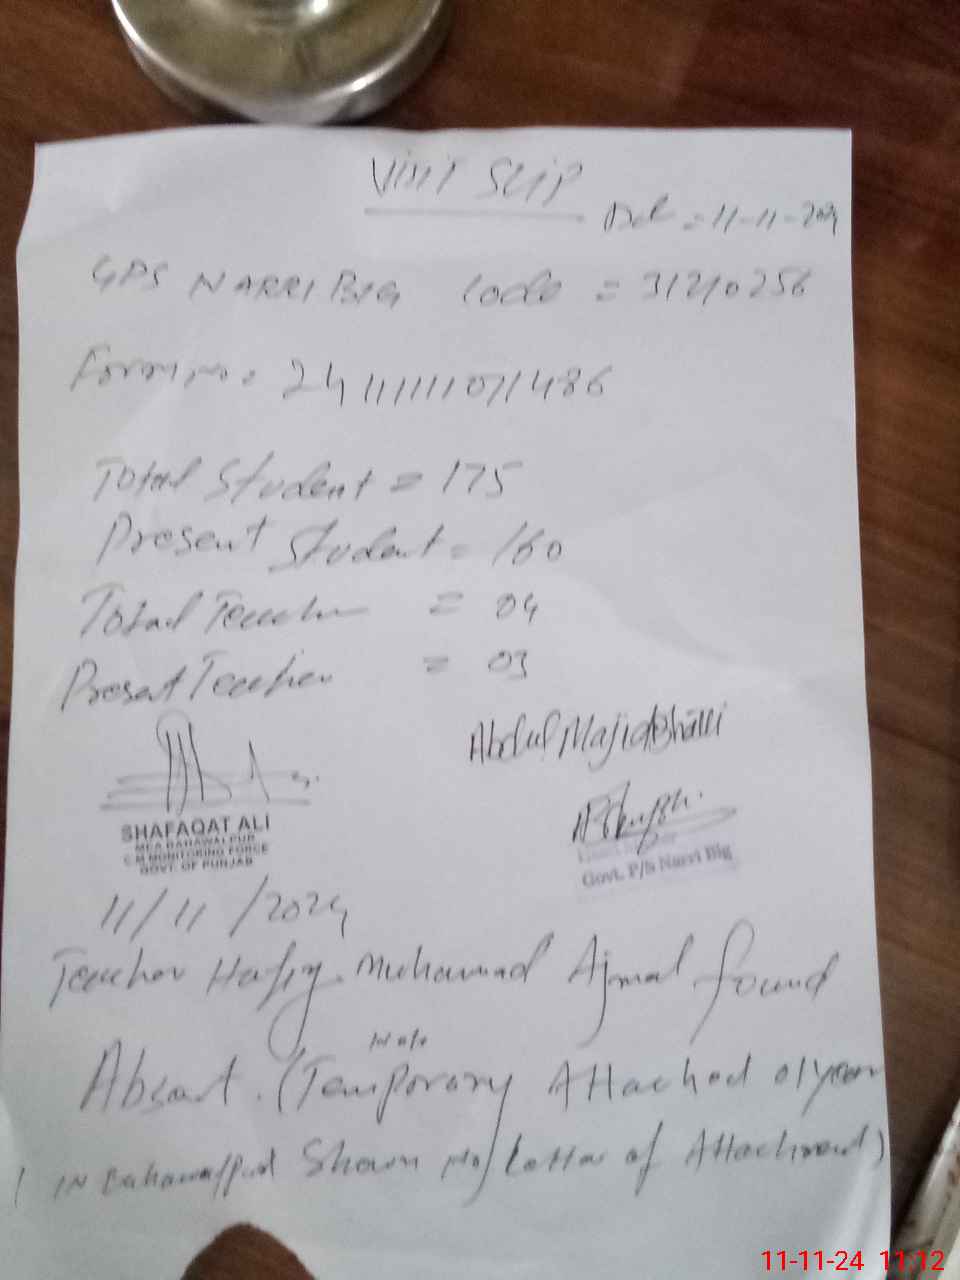 VISIT SLIP
= 11-11-2024
GPS NARRI BIG Code = 31210256
Form no = 24111111071486
Total Student = 175
Present Student = 160
Total Teacher = 04
Present Teacher = 03
Abdul Majid Bhatti
SHAFAQAT ALI
MEA BAHAWALPUR
C.M MONITORING FORCE
GOVT. OF PUNJAB
Govt. P/S Narri Big
11/11/2024
Teacher Hafiz Muhammad Ajmal found
Note
Absent. (Temporary Attached 01 year
IN Shown No Letter of Attachment)
11-11-24 11:12